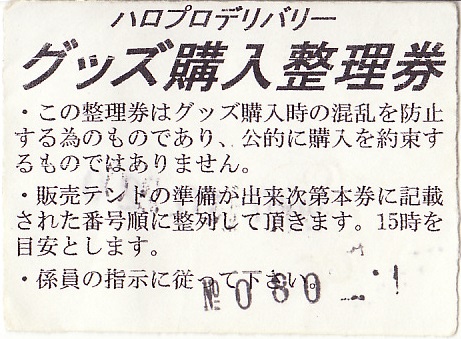 ハロプロデリバリー
グッズ購入整理券
・この整理券はグッズ購入時の混乱を防止
する為のものであり、公的に購入を約束す
るものではありません。
・販売テントの準備が出来次第本券に記載
された番号順に整列して頂きます。15時を
目安とします。
・係員の指示に従って下さい。
№ 080